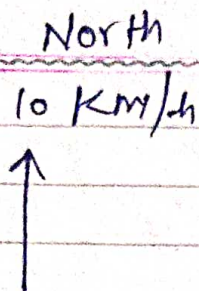 North
10 Km/h